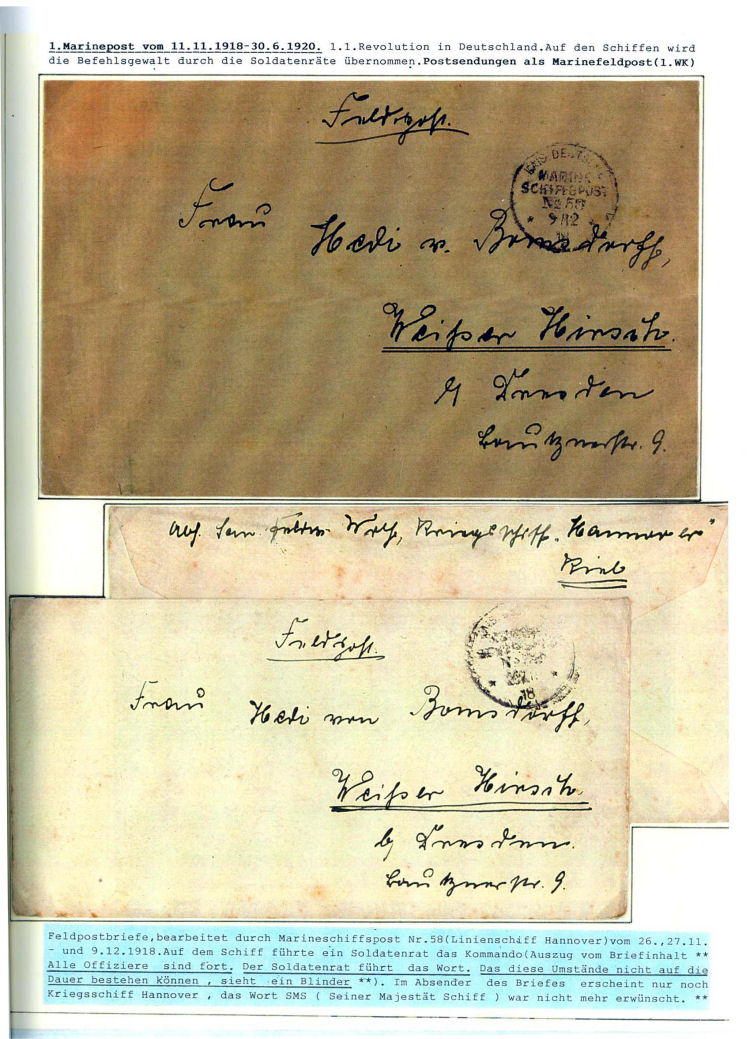 1.Marinepost vom 11.11.1918-30.6.1920. 1.1.Revolution in Deutschland.Auf den Schiffen wird
die Befehlsgewalt durch die Soldatenräte übernommen.Postsendungen als Marinefeldpost(1.WK)
Feldpost.
MARINE
SCHIFFSPOST
No 58
9/12
18
Frau
Hedi v. Bomsdorff,
Weißer Hirsch.
b/ Dresden
Bautznerstr. 9.
Abs. Wolf, Kriegsschiff "Hannover"
Kiel
Feldpost.
18
Frau
Hedi von Bomsdorff,
Weißer Hirsch
b/ Dresden.
Bautznerstr. 9.
Feldpostbriefe,bearbeitet durch Marineschiffspost Nr.58(Linienschiff Hannover)vom 26.,27.11.
- und 9.12.1918.Auf dem Schiff führte ein Soldatenrat das Kommando(Auszug vom Briefinhalt **
Alle Offiziere sind fort. Der Soldatenrat führt das Wort. Das diese Umstände nicht auf die
Dauer bestehen können , sieht ein Blinder **). Im Absender des Briefes erscheint nur noch
Kriegsschiff Hannover , das Wort SMS ( Seiner Majestät Schiff ) war nicht mehr erwünscht. **